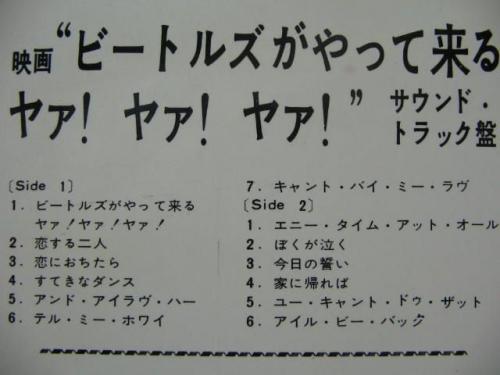 映画“ビートルズがやって来る
ヤァ! ヤァ! ヤァ!”サウンド・
トラック盤
〔Side 1〕
1. ビートルズがやって来る
ヤァ!ヤァ!ヤァ!
2. 恋する二人
3. 恋におちたら
4. すてきなダンス
5. アンド・アイラヴ・ハー
6. テル・ミー・ホワイ
7. キャント・バイ・ミー・ラヴ
〔Side 2〕
1. エニー・タイム・アット・オール
2. ぼくが泣く
3. 今日の誓い
4. 家に帰れば
5. ユー・キャント・ドゥ・ザット
6. アイル・ビー・バック